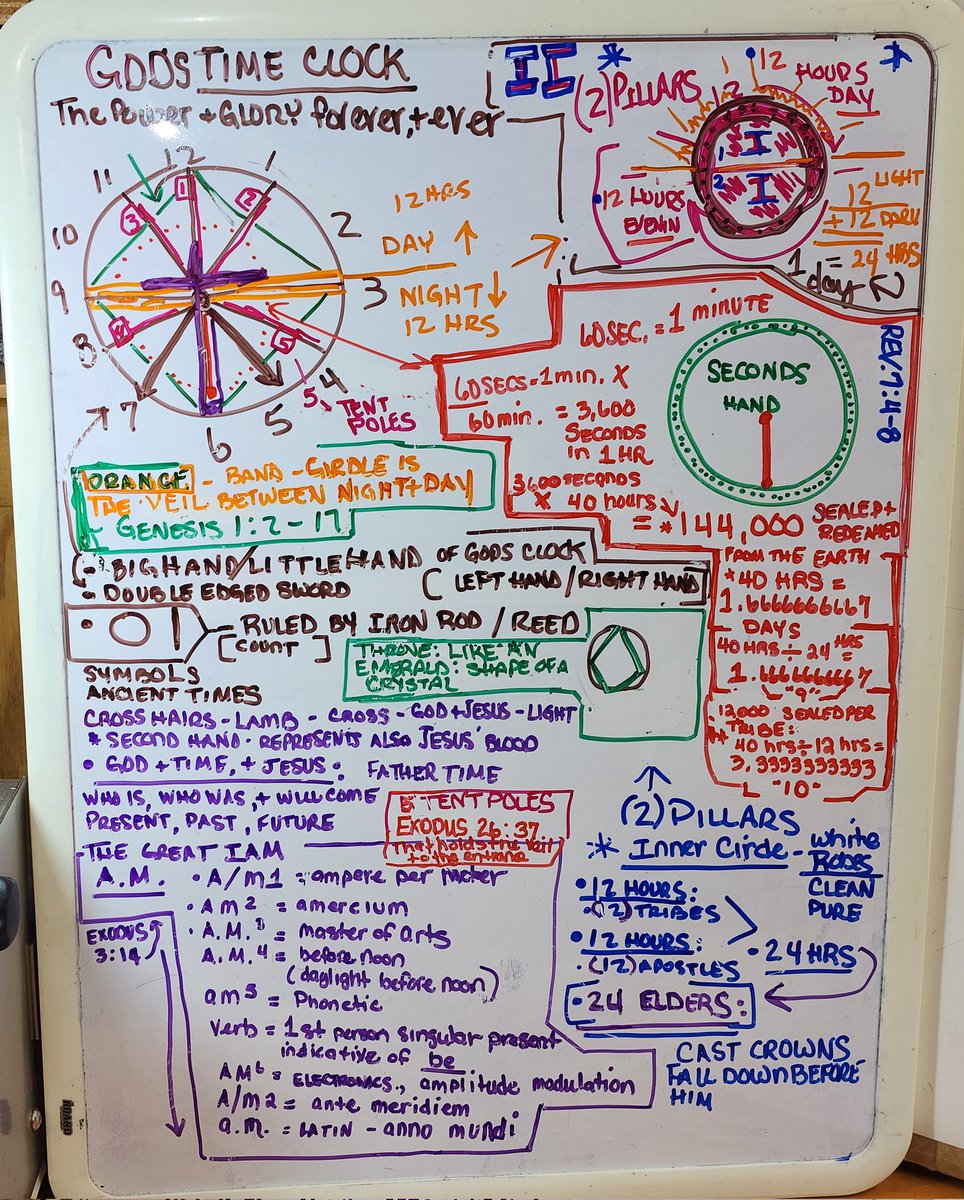 GODS TIME CLOCK
The Power + GLORY forever, + ever
II *
(2) PILLARS
12
1
12
HOURS
DAY
*
I
1
2
I
12 HOURS
EVENIN
12 LIGHT
+ 12 DARK
= 24 HRS
1 day
12
11
10
9
8
7
6
5
4
3
2
1
2
3
4
5
12 HRS
DAY ↑
NIGHT ↓
12 HRS
5 TENT
POLES
60 SEC. = 1 minute
60 SECS = 1 min. X
60 min. = 3,600
Seconds
in 1 HR
3600 seconds
X 40 hours
= *144,000 SEALED +
REDEEMED
FROM THE EARTH
SECONDS
HAND
REV: 7:4-8
* 40 HRS =
1.6666666667
DAYS
40 HRS ÷ 24 HRS =
1.666666667
L "9"
12000 SEALED PER
** TRIBE:
40 hrs ÷ 12 hrs =
3.3333333333
L "10"
ORANGE - BAND - GIRDLE IS
THE VEIL BETWEEN NIGHT + DAY
- GENESIS 1:2-17
- BIG HAND/LITTLE HAND OF GODS CLOCK
- DOUBLE EDGED SWORD
( LEFT HAND / RIGHT HAND )
RULED BY IRON ROD / REED
[COUNT]
SYMBOLS
ANCIENT TIMES
THRONE: LIKE AN
EMERALD: SHAPE OF A
CRYSTAL
CROSS HAIRS - LAMB - CROSS - GOD + JESUS - LIGHT
* SECOND HAND - REPRESENTS ALSO JESUS' BLOOD
• GOD + TIME, + JESUS: FATHER TIME
WHO IS, WHO WAS, + WILL COME
PRESENT, PAST, FUTURE
5 TENT POLES
EXODUS 26:37
That holds the veil
to the entrance
THE GREAT I AM
A.M.
EXODUS
3:14
• A/m1 = ampere per meter
• Am² = amercium
• A.M.³ = master of arts
A.M.⁴ = before noon
(daylight before noon)
am⁵ = Phonetic
Verb = 1st person singular present
indicative of be
AM⁶ = ELECTRONICS., amplitude modulation
A/m2 = ante meridiem
a.m. = LATIN - anno mundi
(2) PILLARS
* Inner Circle - white
ROBES
CLEAN
PURE
• 12 HOURS:
• (12) TRIBES
• 12 HOURS:
• (12) APOSTLES
• 24 HRS
• 24 ELDERS:
CAST CROWNS
FALL DOWN BEFORE
HIM
BOARD